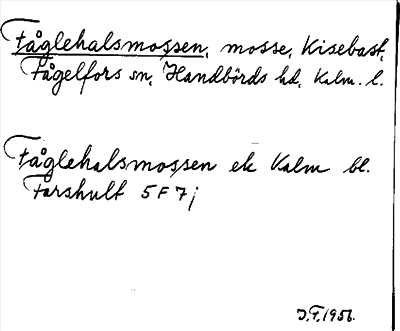 Fåglehalsmossen, mosse, Kisebast,
Fågelfors sn, Handbörds hd, Kalm. l.
Fåglehalsmossen ek Kalm bl.
Farshult 5 F 7 j
J.F. 1956.